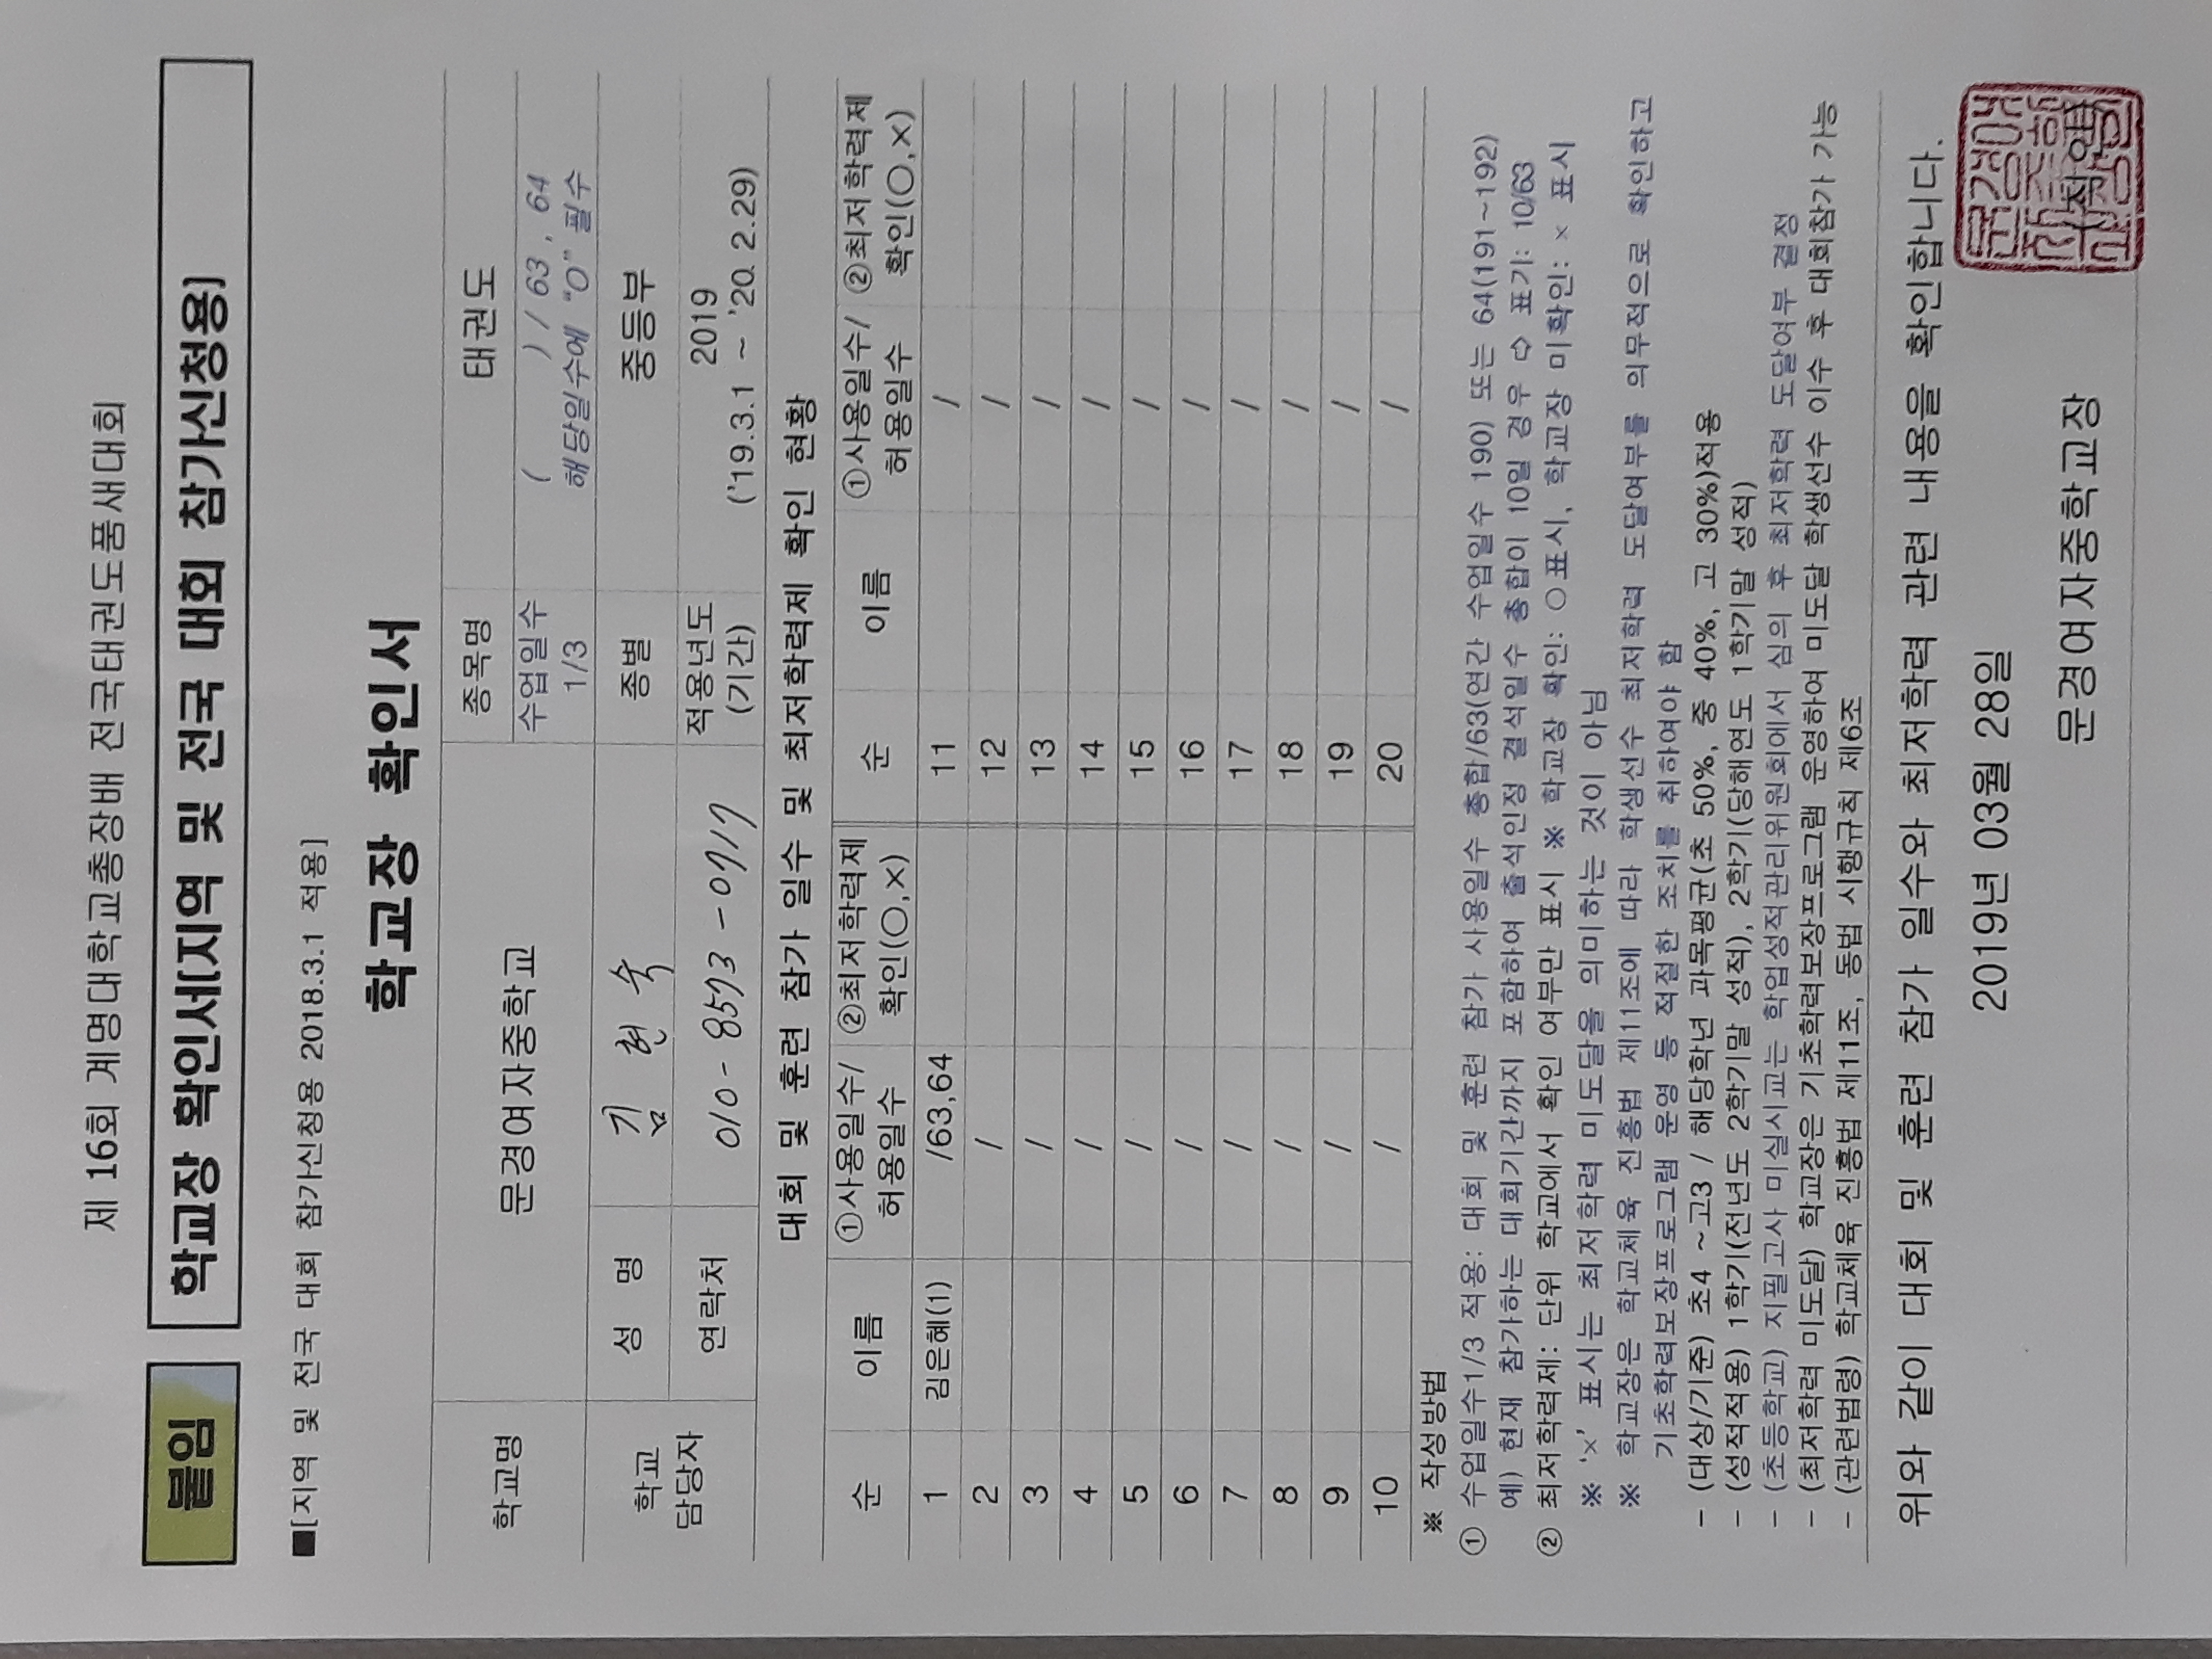 제 16회 계명대학교총장배 전국태권도품새대회
붙임 학교장 확인서[지역 및 전국 대회 참가신청용]
■[지역 및 전국 대회 참가신청용 2018.3.1 적용]
학교장 확인서
학교명 문경여자중학교 종목명 태권도
수업일수 1/3 ( ) / 63 , 64
해당일수에 "O" 필수
학교 담당자 성 명 김 현 숙 종별 중등부
연락처 010 - 8593 - 0917 적용년도 (기간) 2019
('19.3.1 ~ '20. 2.29)
대회 및 훈련 참가 일수 및 최저학력제 확인 현황
순 이름 ①사용일수/ 허용일수 ②최저학력제 확인(○,×) 순 이름 ①사용일수/ 허용일수 ②최저학력제 확인(○,×)
1 김은혜(1) /63,64 11 /
2 / 12 /
3 / 13 /
4 / 14 /
5 / 15 /
6 / 16 /
7 / 17 /
8 / 18 /
9 / 19 /
10 / 20 /
※ 작성방법
① 수업일수1/3 적용: 대회 및 훈련 참가 사용일수 총합/63(연간 수업일수 190) 또는 64(191~192)
예) 현재 참가하는 대회기간까지 포함하여 출석인정 결석일수 총합이 10일 경우 ⇨ 표기: 10/63
② 최저학력제: 단위 학교에서 확인 여부만 표시 ※ 학교장 확인: ○표시, 학교장 미확인: × 표시
※ '×' 표시는 최저학력 미도달을 의미하는 것이 아님
※ 학교장은 학교체육 진흥법 제11조에 따라 학생선수 최저학력 도달여부를 의무적으로 확인하고
기초학력보장프로그램 운영 등 적절한 조치를 취하여야 함
- (대상/기준) 초4 ~고3 / 해당학년 과목평균(초 50%, 중 40%, 고 30%)적용
- (성적적용) 1학기(전년도 2학기말 성적), 2학기(당해연도 1학기말 성적)
- (초등학교) 지필고사 미실시교는 학업성적관리위원회에서 심의 후 최저학력 도달여부 결정
- (최저학력 미도달) 학교장은 기초학력보장프로그램 운영하여 미도달 학생선수 이수 후 대회참가 가능
- (관련법령) 학교체육 진흥법 제11조, 동법 시행규칙 제6조
위와 같이 대회 및 훈련 참가 일수와 최저학력 관련 내용을 확인합니다.
2019년 03월 28일
문경여자중학교장